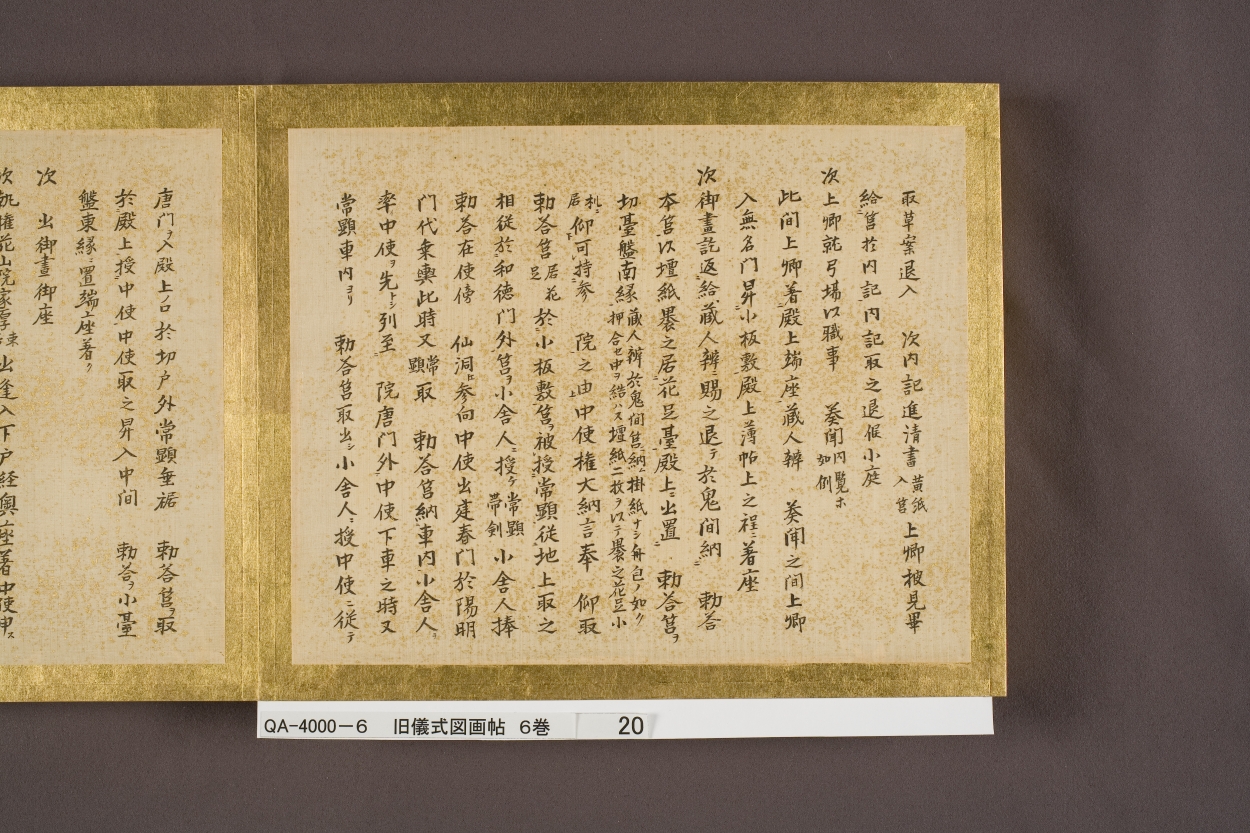 取草案退入　次内記進清書黄紙入筥上卿披見畢
給筥於内記内記取之退催小庭
次上卿就弓場以職事　奏聞内覧ホ如例
此間上卿着殿上端座蔵人辨　奏聞之間上卿
入無名門昇小板敷殿上薄帖上之程ニ著座
次御畫訖返給蔵人辨ニ賜之退テ於鬼間納　勅答
本筥以壇紙褁之居花足臺殿上ニ出置　勅答筥ヲ
切臺盤南縁蔵人辨於鬼間筥ニ納掛紙ナシ舟包ノ如ク押合セ中ヲ結ハス壇紙二枚ヲ以テ褁之花足小
机ニ居仰可持参　院之由中使権大納言奉　仰取
勅答筥居花足於小板敷筥ヲ被授常顕従地上取之
相従於和徳門外筥ヲ小舎人ニ授ケ常顕帯剣小舎人捧
勅答在使傍　仙洞ニ参向中使出建春門於陽明
門代乗輿此時又常顕取　勅答筥納車内小舎人
率中使ヲ先トシ列至　院唐門外中使下車之時又
常顕車内ヨリ　勅答筥取出シ小舎人ニ授中使ニ従テ
唐門ヲ入殿上口於切戸外常顕垂裾　勅答筥ヲ取
於殿上授中使中使取之昇入中間　勅答ヲ小臺
盤東縁ニ置端座着ク
次　出御晝御座
出逢入下戸経輿座著中使申ス
QA-4000-6　旧儀式図画帖　6巻　20